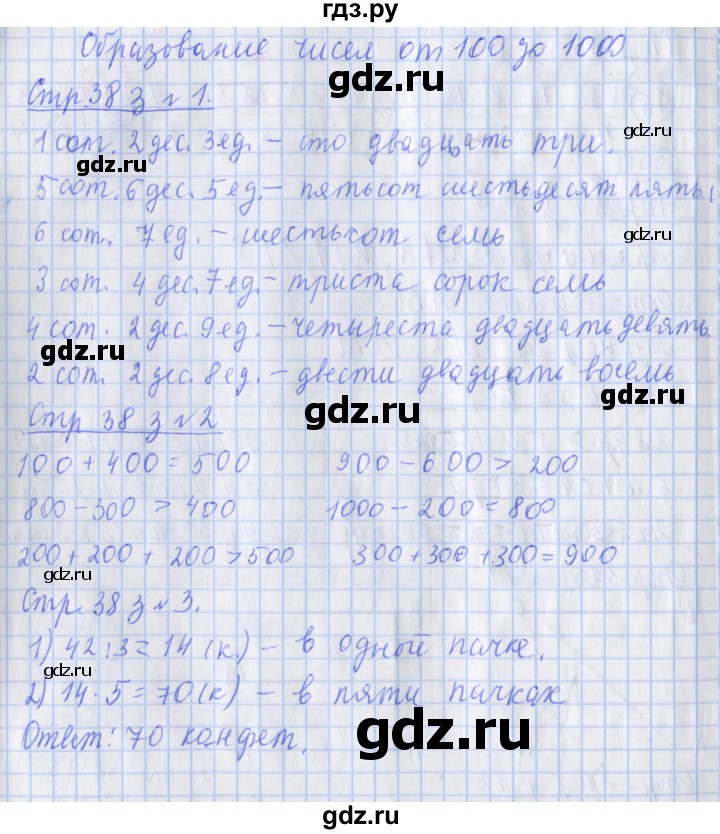 гдз.ру
Образование чисел от 100 до 1000
gdz.ru
Стр. 38 з № 1.
gdz.ru
1 сот. 2 дес. 3 ед. – сто двадцать три.
gdz.ru
5 сот. 6 дес. 5 ед. – пятьсот шестьдесят пять
6 сот. 7 ед. – шестьсот семь
gdz.ru
3 сот. 4 дес. 7 ед. – триста сорок семь
4 сот. 2 дес. 9 ед. – четыреста двадцать девять
gdz.ru
2 сот. 2 дес. 8 ед. – двести двадцать восемь
gdz.ru
Стр 38 з № 2
gdz.ru
100 + 400 = 500 900 – 600 > 200
800 – 300 > 400 1000 – 200 = 800
200 + 200 + 200 > 500 300 + 300 + 300 = 900
gdz.ru
gdz.ru
Стр. 38 з № 3.
1) 42 : 3 = 14 (к.) – в одной пачке.
gdz.ru
2) 14 · 5 = 70 (к) – в пяти пачках
gdz.ru
Ответ: 70 конфет.
gdz.ru
gdz.ru